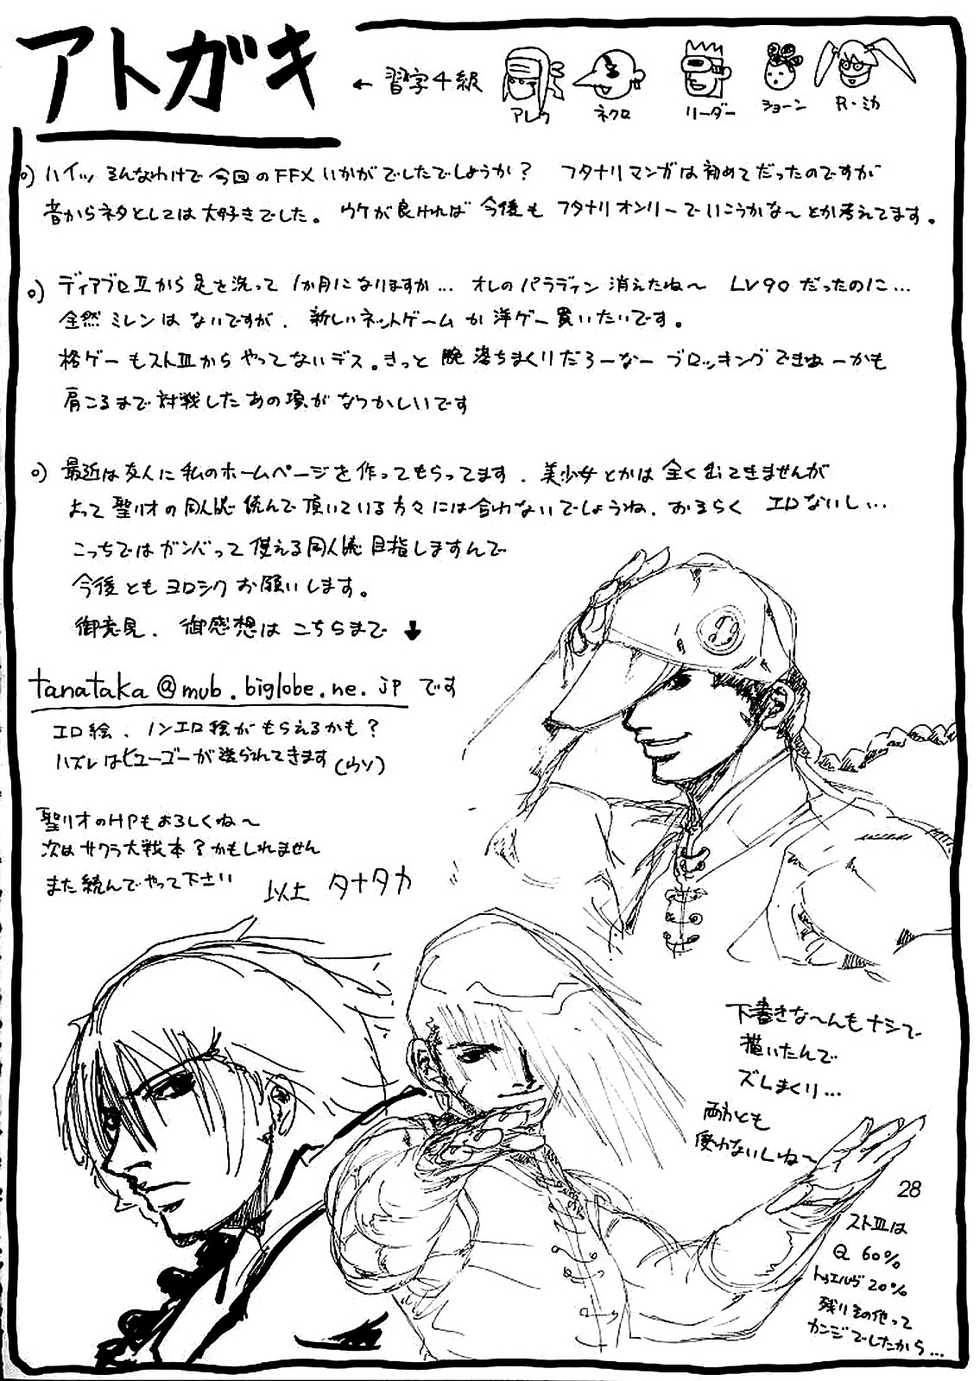 アトガキ
← 習字4級
アレク
ネクロ
リーダー
ショーン
R・ミカ
o) ハイッ そんなわけで今回のFFXいかがでしたでしょうか? フタナリマンガは初めてだったのですが
昔からネタとしては大好きでした。 ウケが良ければ今後もフタナリオンリーでいこうかな〜とか考えてます。
o) ディアブロIIから足を洗って1か月になりますか... オレのパラディン消えたね〜 LV90だったのに...
全然ミレンはないですが、新しいネットゲームか洋ゲー買いたいです。
格ゲーもストIIIからやってないデス。きっと腕落ちまくりだろーなー ブロッキングできねーかも
肩こるまで対戦したあの頃がなつかしいです
o) 最近は友人に私のホームページを作ってもらってます、美少女とかは全く出てきませんが
よって聖リオの同人誌読んで頂いている方々には合わないでしょうね、おそらく エロないし...
こっちではガンバって使える同人誌目指しますんで
今後ともヨロシクお願いします。
御意見、御感想はこちらまで ↓
tanataka@mub.biglobe.ne.jp です
エロ絵、ノンエロ絵がもらえるかも?
ハズレはヒューゴーが送られてきます (ウソ)
聖リオのHPもよろしくね〜
次はサクラ大戦本?かもしれません
また読んでやって下さい
以上 タナタカ
下書きな〜んもナシで
描いたんで
ズレまくり...
両わとも
使わないしね〜
28
ストIIIは
Q 60%
トゥエルヴ20%
残りその他って
カンジでしたから...